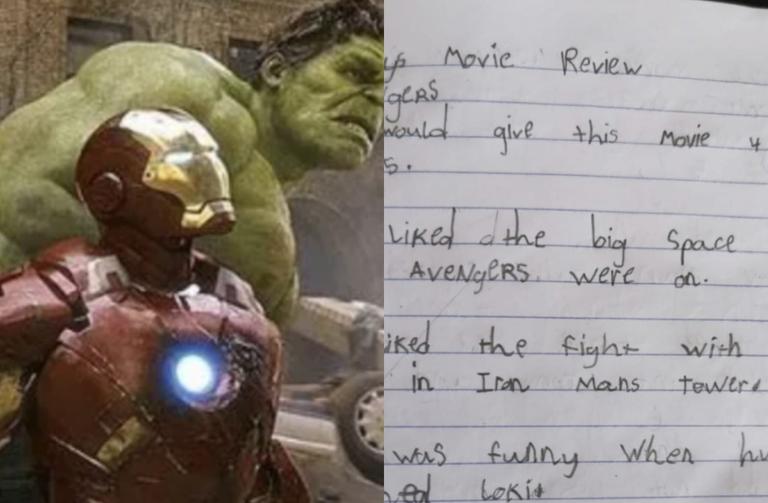 Movie Review
gERS
would give this Movie 4
5.
Liked the big Space
AVENgERS were on.
iked the fight with
in Iron Mans tower.
was funny when hu
ed Loki